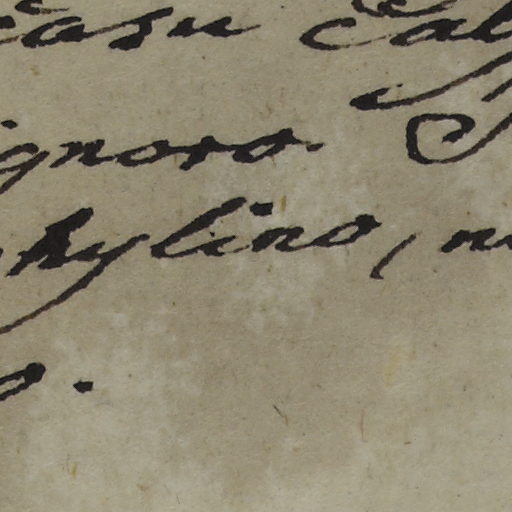 casu Cal
ignoro.
hylino, n
o.